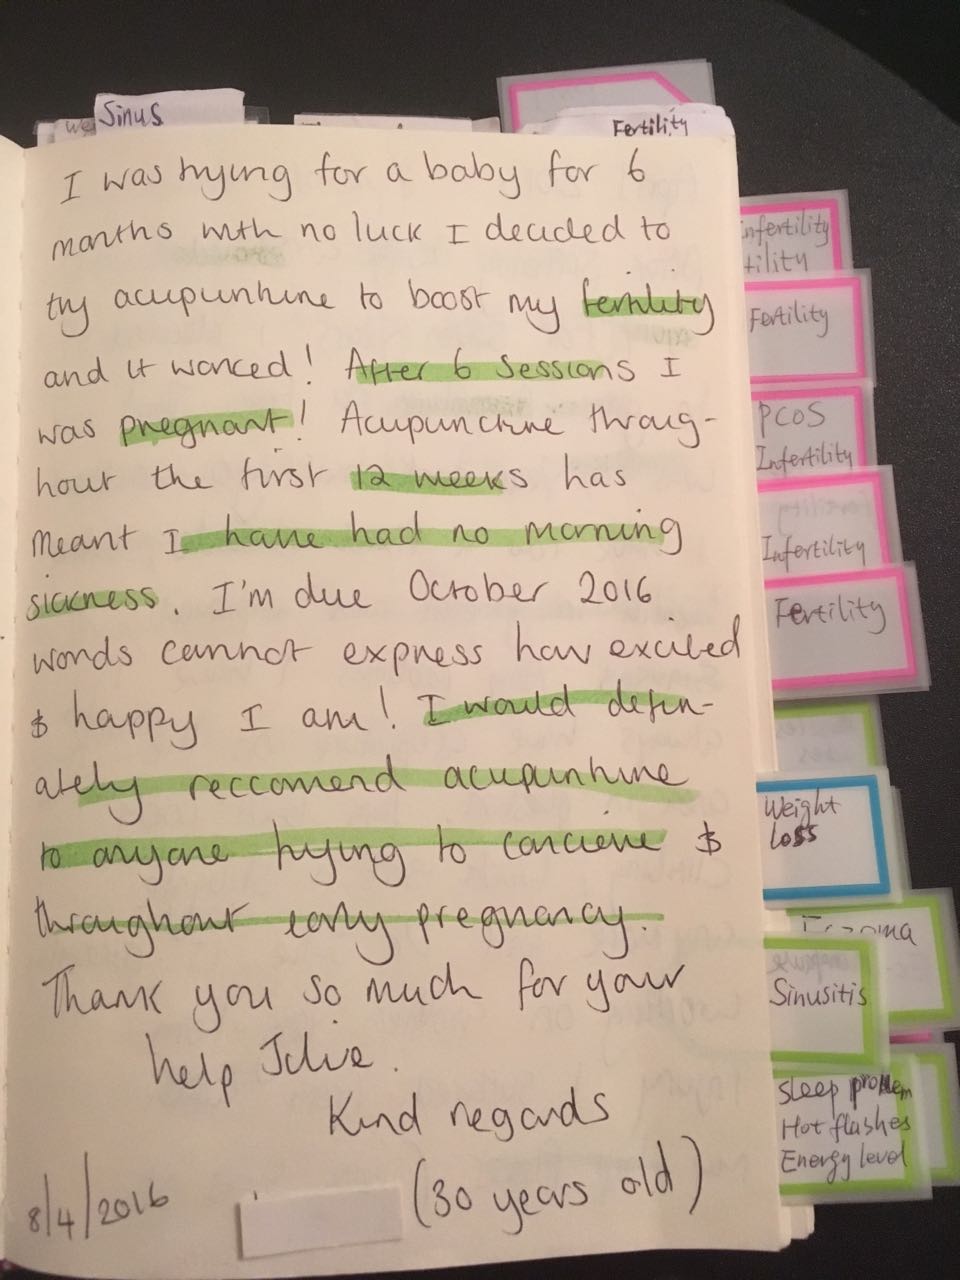 Sinus
Fertility
I was trying for a baby for 6
months with no luck I decided to
try acupunture to boost my fertility
and it worked! After 6 sessions I
was pregnant! Acupuncture throug-
hout the first 12 weeks has
meant I have had no morning
sickness. I'm due October 2016
words cannot express how excited
& happy I am! I would defin-
ately reccomend acupunture
to anyone trying to concieve &
throughout early pregnancy.
Thank you so much for your
help Julie.
Kind regards
8/4/2016 (30 years old)
infertility
tility
Fertility
PCOS
Infertility
Fertility
Infertility
Fertility
Weight
loss
Sinusitis
Sleep problem
Hot flashes
Energy level